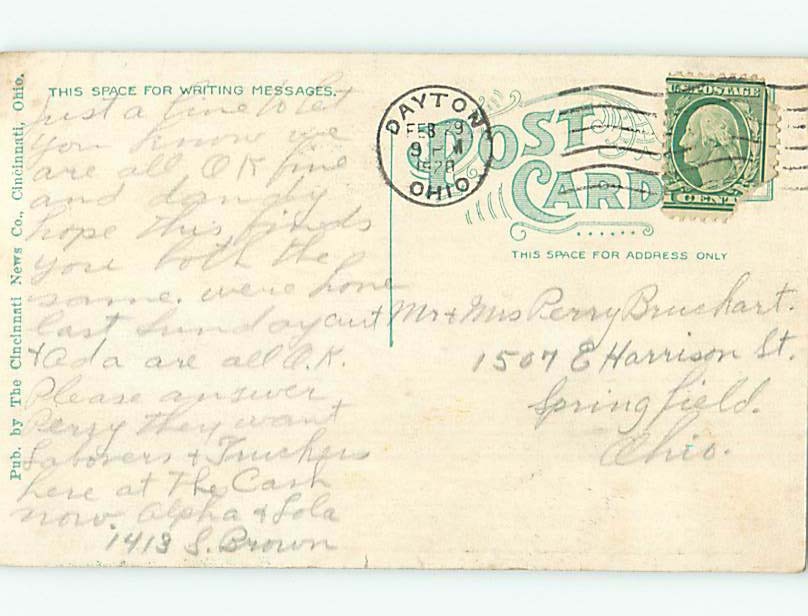 Pub. by The Cincinnati News Co., Cincinnati, Ohio.
THIS SPACE FOR WRITING MESSAGES.
Just a line to let
you know we
are all OK fine
and dandy
hope this finds
you both the
same. were home
last Sunday
& Ada are all O.K.
Please answer
Perry they want
Laborers & Truckers
here at The Cash
now. Alpha & Lola
1413 S. Brown
DAYTON
FEB 9
9 M
1928
OHIO
POST
CARD
U.S. POSTAGE
1 CENT
THIS SPACE FOR ADDRESS ONLY
Mr & Mrs Perry Bruchart.
1507 E Harrison St.
Springfield.
Ohio.